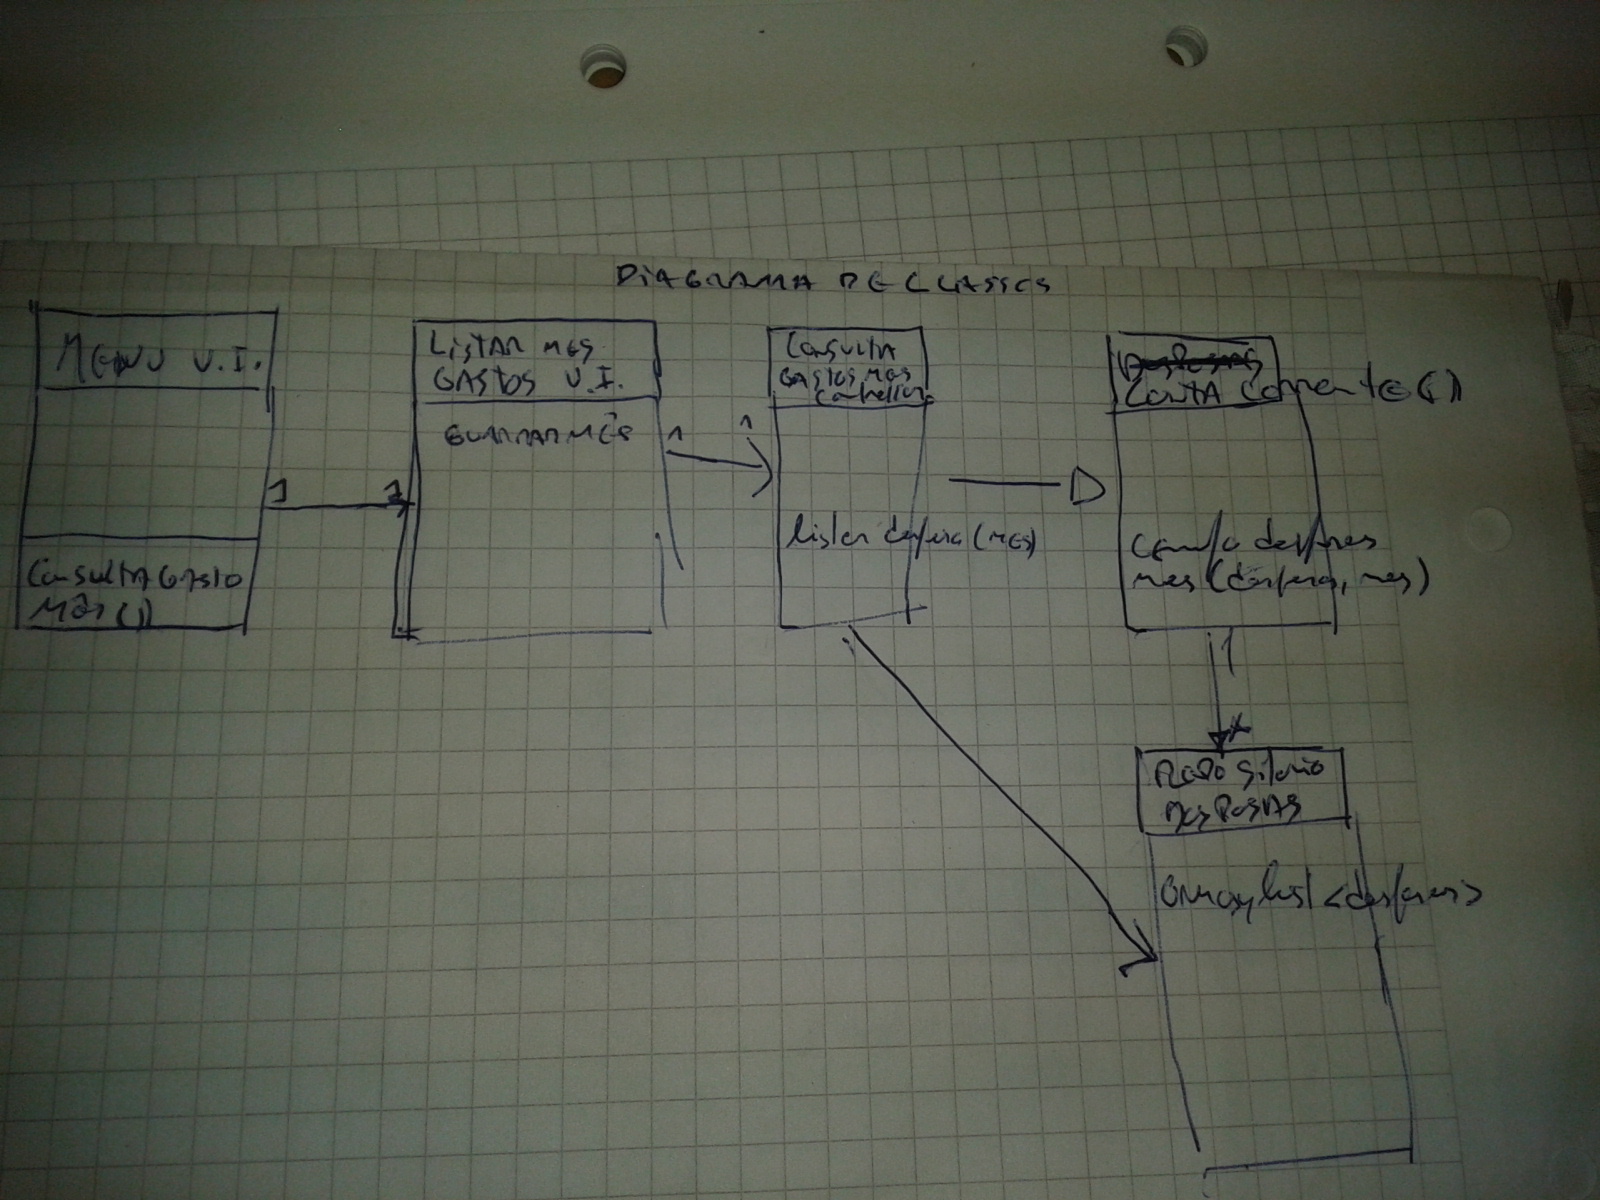 DIAGRAMA DE CLASSES
MENU U.I.
CONSULTA GASTO
MÊS()
LISTAR MES
GASTOS U.I.
GUARDAR MÊS
1 1
1 1
CONSULTA
GASTOS MES
Controller
listar despesa (MES)
CONTA Corrente ()
despesas
mes (despesa, mes)
1
*
REPOSitorio
DESPESAS
Array list <despesas>